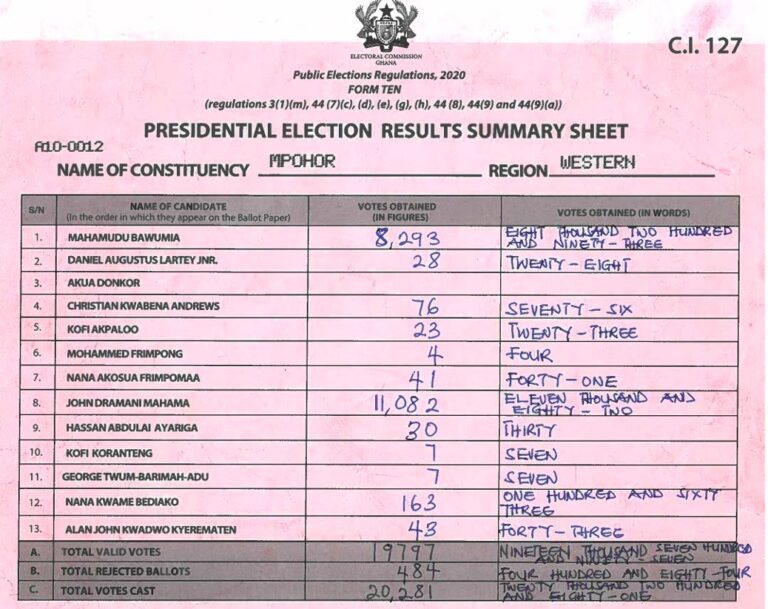 ELECTORAL COMMISSION
GHANA
C.I. 127
Public Elections Regulations, 2020
FORM TEN
(regulations 3(1)(m), 44 (7)(c), (d), (e), (g), (h), 44 (8), 44(9) and 44(9)(a))
PRESIDENTIAL ELECTION RESULTS SUMMARY SHEET
A10-0012
NAME OF CONSTITUENCY MPOHOR REGION WESTERN
S/N NAME OF CANDIDATE (In the order in which they appear on the Ballot Paper) VOTES OBTAINED (IN FIGURES) VOTES OBTAINED (IN WORDS)
1. MAHAMUDU BAWUMIA 8,293 EIGHT THOUSAND TWO HUNDRED AND NINETY-THREE
2. DANIEL AUGUSTUS LARTEY JNR. 28 TWENTY-EIGHT
3. AKUA DONKOR
4. CHRISTIAN KWABENA ANDREWS 76 SEVENTY-SIX
5. KOFI AKPALOO 23 TWENTY-THREE
6. MOHAMMED FRIMPONG 4 FOUR
7. NANA AKOSUA FRIMPOMAA 41 FORTY-ONE
8. JOHN DRAMANI MAHAMA 11,082 ELEVEN THOUSAND AND EIGHTY-TWO
9. HASSAN ABDULAI AYARIGA 30 THIRTY
10. KOFI KORANTENG 7 SEVEN
11. GEORGE TWUM-BARIMAH-ADU 7 SEVEN
12. NANA KWAME BEDIAKO 163 ONE HUNDRED AND SIXTY THREE
13. ALAN JOHN KWADWO KYEREMATEN 43 FORTY-THREE
A. TOTAL VALID VOTES 19797 NINETEEN THOUSAND SEVEN HUNDRED AND NINETY-SEVEN
B. TOTAL REJECTED BALLOTS 484 FOUR HUNDRED AND EIGHTY-FOUR
C. TOTAL VOTES CAST 20,281 TWENTY THOUSAND TWO HUNDRED AND EIGHTY-ONE